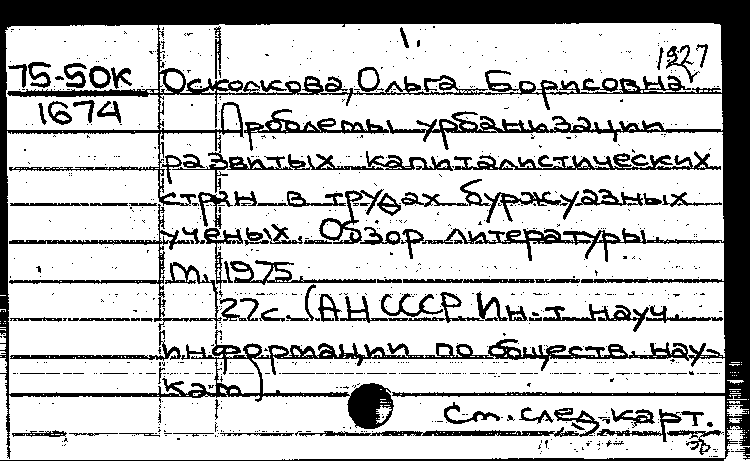 1.
1927
75-50К Осколкова, Ольга Борисовна.
1674 Проблемы урбанизации
развитых капиталистических
стран в трудах буржуазных
ученых. Обзор литературы.
М., 1975.
27с. (АН СССР Ин-т науч.
информации по обществ. нау-
кам).
См. след. карт.